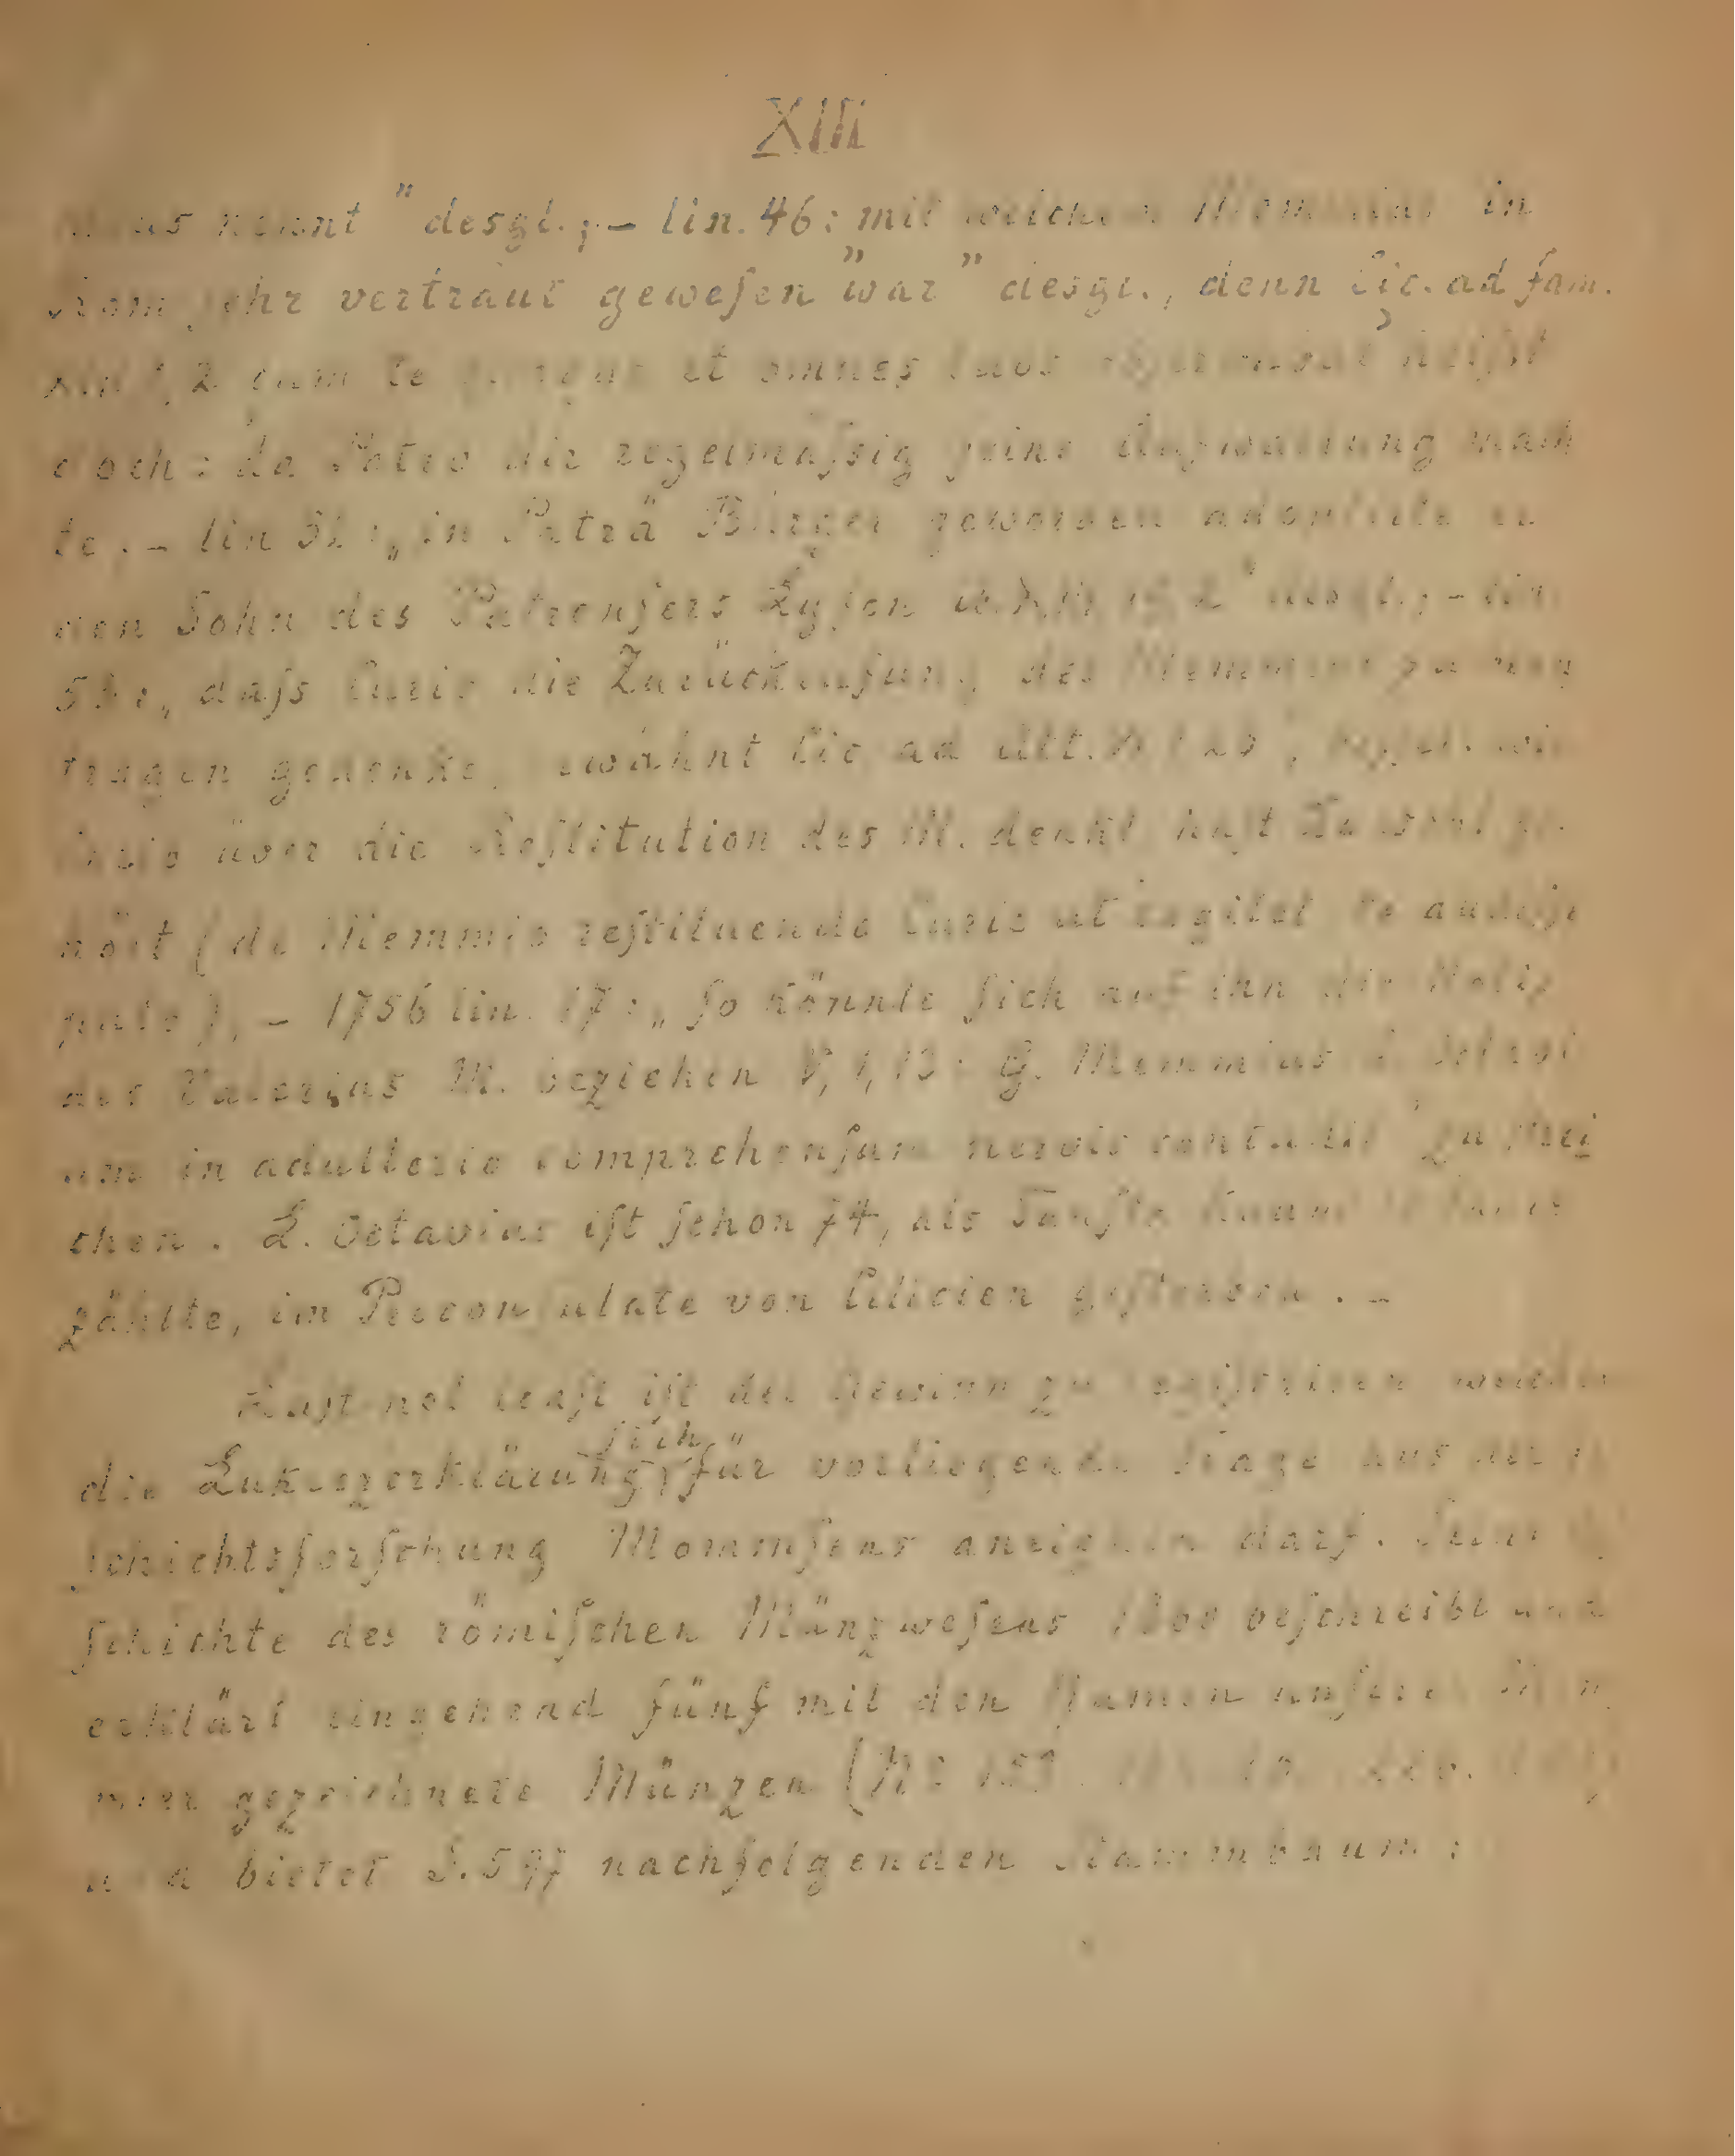 XIII
nennt" desgl.; – lin. 46: mit welchem Memmius in
Rom sehr vertraut gewesen war" desgl., denn Cic. ad fam.
XIII 1, 2 cum te et omnes tuos heißt
doch: da Patro dir regelmäßig seine Aufwartung mach
te. – lin 52: „in Paträ Bürger geworden adoptirte er
den Sohn des Patrensers Lyson desgl.; – lin
53: „daß Curio die Zurückrufung des Memmius zu
tragen gedenke, erwähnt Cic ad Att.
Curio über die Restitution des M. denkt hast Du wohl ge
hört (de Memmio restituendo Curio ut cogitet te audisse
puto), – 1756 lin. 17: „So könnte sich auf ihn die Notiz
des Valerius M. beziehen V, 1, 13: G. Memmius
um in adulterio comprehensum nervis contudit" zu strei
chen. L. Octavius ist schon 74, als Fausta kaum
zählte, im Proconsulate von Cilicien gestorben. –
Last not least ist der Gewinn zu registriren welchen
die Lukrezerklärung sich für vorliegende Frage aus der Ge
schichtsforschung Mommsens aneignen darf. Seine Ge
schichte des römischen Münzwesens 1860 beschreibt und
erklärt eingehend fünf mit den Namen unserer Mem
mier gezeichnete Münzen (N:
und bietet S. 597 nachfolgenden Stammbaum: